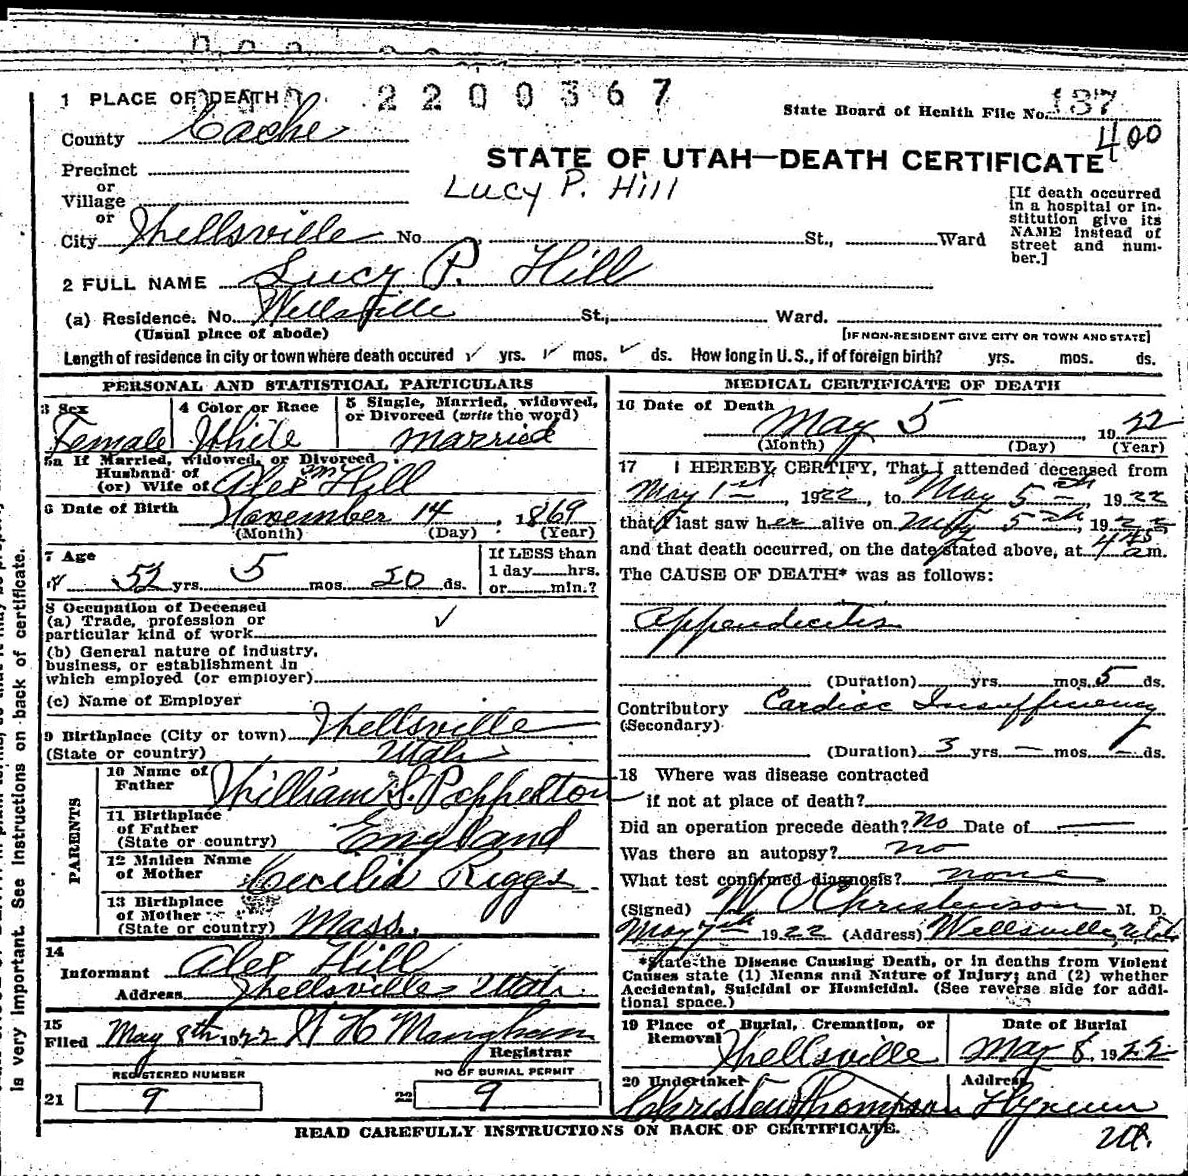 1 PLACE OF DEATH 2200367
State Board of Health File No. 187
400
County Cache
STATE OF UTAH—DEATH CERTIFICATE
Precinct
or
Village
Lucy P. Hill
[If death occurred in a hospital or in-
stitution give its
NAME instead of
street and num-
ber.]
or
City Wellsville No. St., Ward
2 FULL NAME Lucy P. Hill
(a) Residence. No. Wellsville St., Ward.
(Usual place of abode) [IF NON-RESIDENT GIVE CITY OR TOWN AND STATE]
Length of residence in city or town where death occured ✓ yrs. ✓ mos. ✓ ds. How long in U.S., if of foreign birth? yrs. mos. ds.
PERSONAL AND STATISTICAL PARTICULARS
3 Sex 4 Color or Race 5 Single, Married, widowed,
or Divorced (write the word)
Female White Married
5a If Married, widowed, or Divorced
Husband of
(or) Wife of Alex Hill
6 Date of Birth November 14, 1869
(Month) (Day) (Year)
7 Age 52 yrs. 5 mos. 20 ds.
If LESS than
1 day hrs.
or min.?
8 Occupation of Deceased
(a) Trade, profession or
particular kind of work ✓
(b) General nature of industry,
business, or establishment in
which employed (or employer)
(c) Name of Employer
9 Birthplace (City or town) Wellsville
(State or country) Utah
PARENTS
10 Name of
Father William S. Poppleton
11 Birthplace
of Father
(State or country) England
12 Maiden Name
of Mother Cecilia Riggs
13 Birthplace
of Mother
(State or country) Mass.
14
Informant Alex Hill
Address Wellsville Utah
15
Filed May 8th 1922 W H Maughan
Registrar
REGISTERED NUMBER NO OF BURIAL PERMIT
21 9 22 9
MEDICAL CERTIFICATE OF DEATH
16 Date of Death May 5, 1922
(Month) (Day) (Year)
17 I HEREBY CERTIFY, That I attended deceased from
May 1st, 1922, to May 5th 1922
that I last saw her alive on May 5th, 1922
and that death occurred, on the date stated above, at 4 45 am.
The CAUSE OF DEATH* was as follows:
Appendicitis
(Duration) yrs. mos. 5 ds.
Contributory Cardiac Insufficiency
(Secondary)
(Duration) 3 yrs. — mos. — ds.
18 Where was disease contracted
if not at place of death?
Did an operation precede death? No Date of —
Was there an autopsy? no
What test confirmed diagnosis? none
(Signed) W O Christenson M. D.
May 7th 1922 (Address) Wellsville, Utah
*State the Disease Causing Death, or in deaths from Violent
Causes state (1) Means and Nature of Injury; and (2) whether
Accidental, Suicidal or Homicidal. (See reverse side for addi-
tional space.)
19 Place of Burial, Cremation, or
Removal Wellsville
Date of Burial
May 8 1922
20 Undertaker Address
Thompson Hyrum
Ut.
READ CAREFULLY INSTRUCTIONS ON BACK OF CERTIFICATE.
is very important. See instructions on back of certificate.